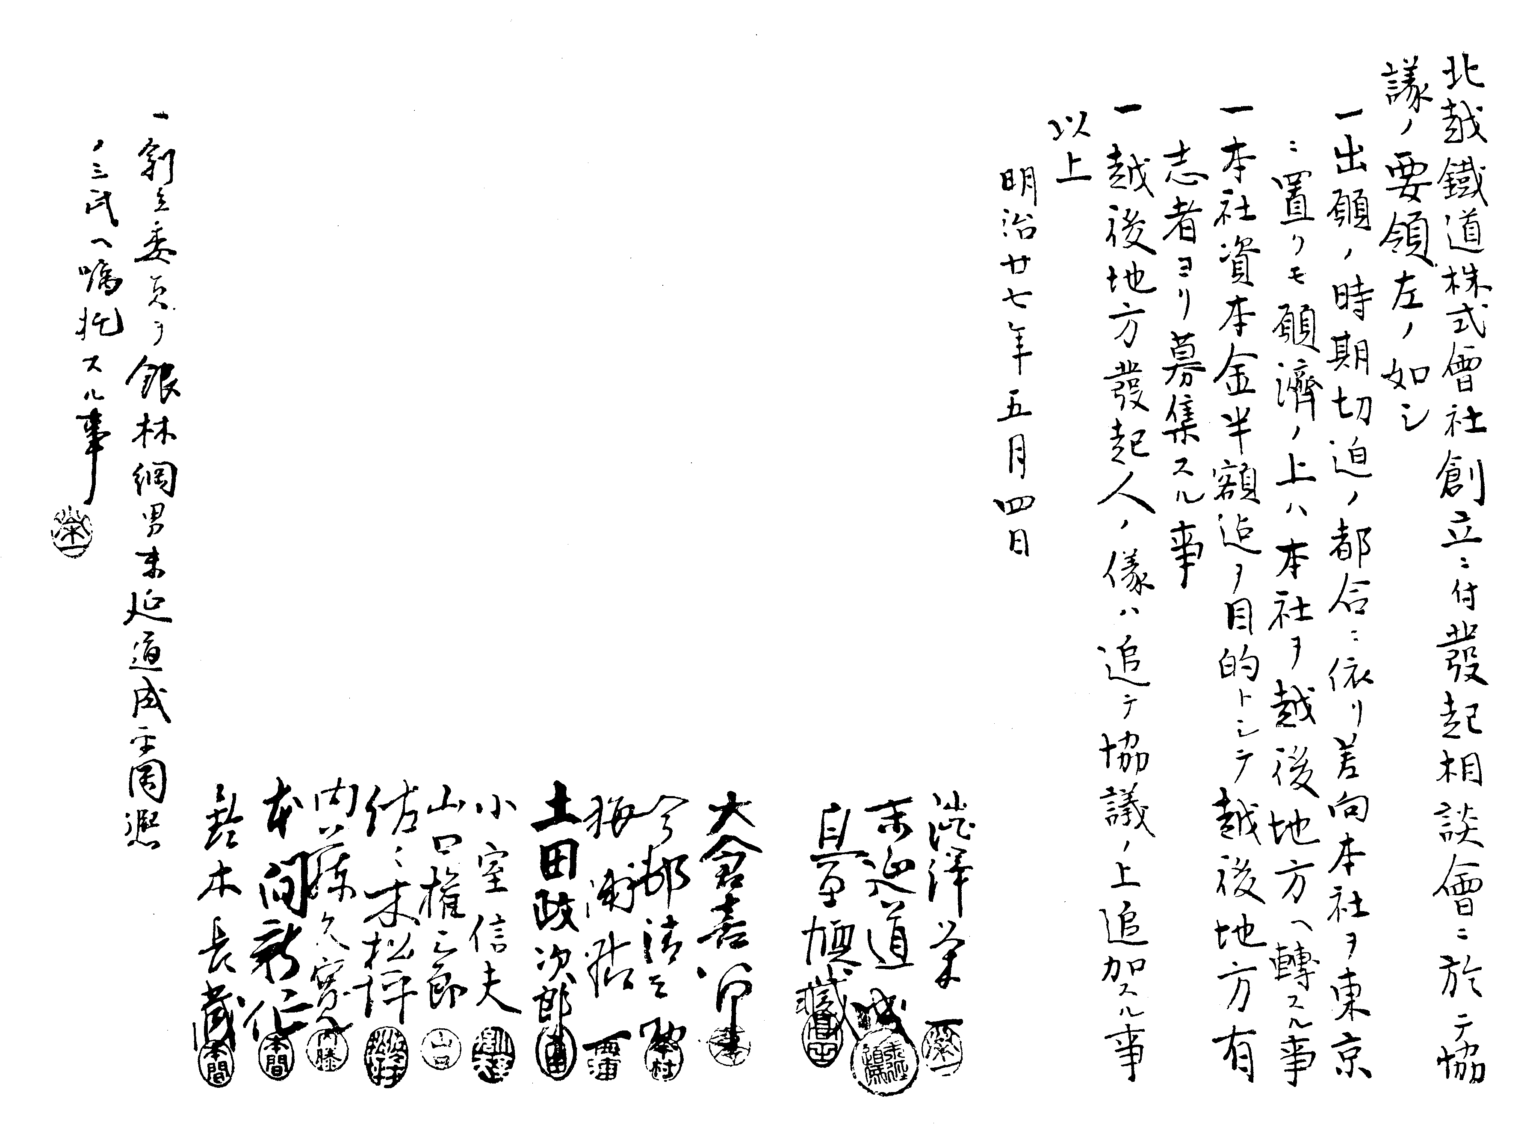 北越鐵道株式會社創立ニ付發起相談會ニ於テ協
議ノ要領左ノ如シ
一出願ノ時期切迫ノ都合ニ依リ差向本社ヲ東京
ニ置クモ願濟ノ上ハ本社ヲ越後地方ヘ轉スル事
一本社資本金半額迠ヲ目的トシテ越後地方有
志者ヨリ募集スル事
一越後地方發起人ノ儀ハ追テ協議ノ上追加スル事
以上
明治廿七年五月四日
澁澤栄一
末延道成
大倉喜八郎
今村清之助
梅浦精一
土田政次郎
小室信夫
山口権三郎
佐々木松坪
内藤久寛
本間新作
鈴木長蔵
一創立委員ヲ銀林綱男末延道成平岡凞
ノ三氏ヘ嘱托スル事